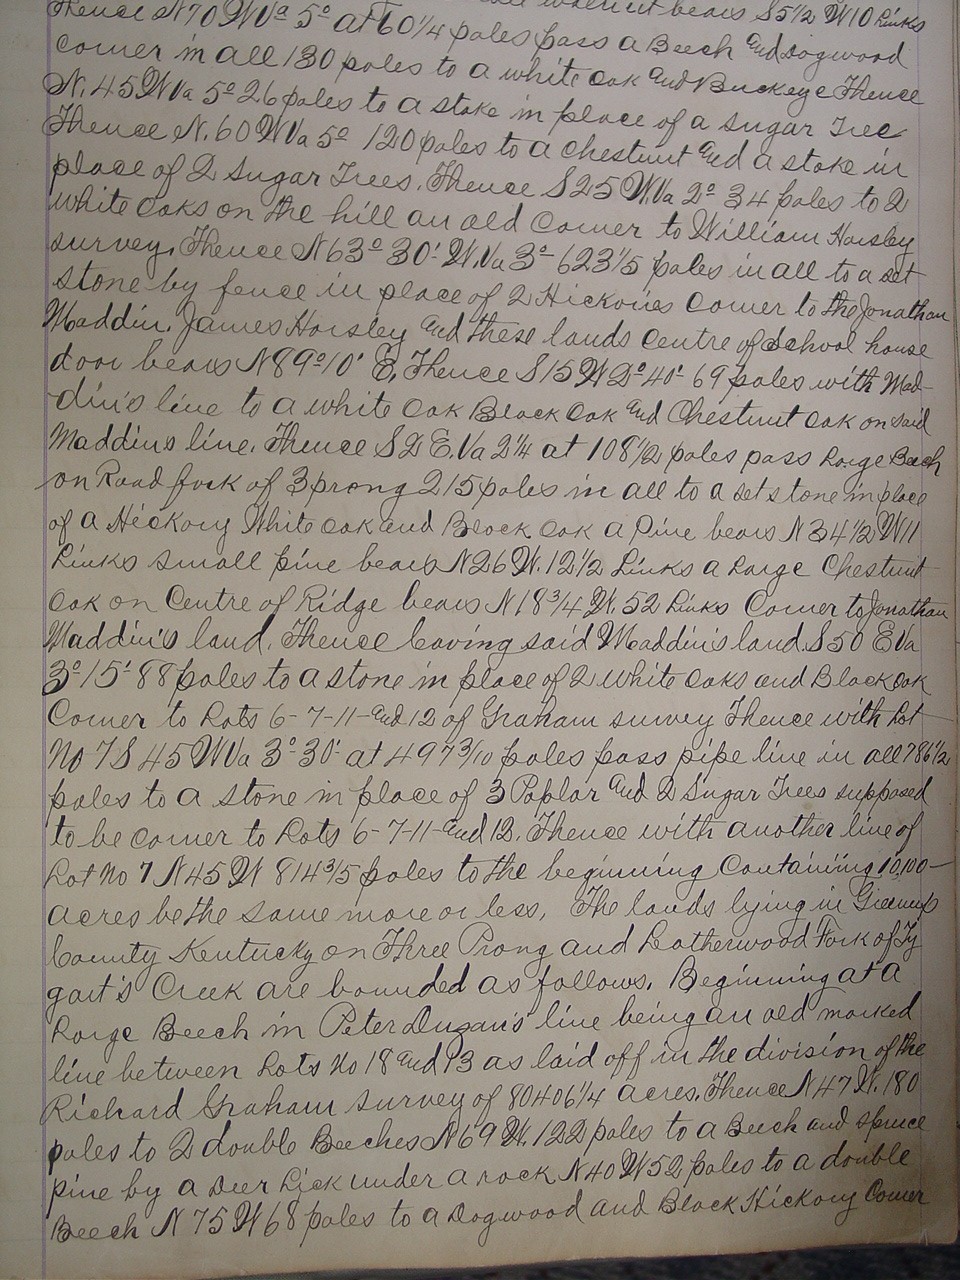 Thence N70 W Va 5° at 60 1/4 poles pass a Beech and Dogwood
corner in all 130 poles to a white oak and Buckeye Thence
N. 45 W Va 5° 26 poles to a stake in place of a Sugar Tree
Thence N. 60 W Va 5° 120 poles to a chestnut and a stake in
place of 2 Sugar Trees. Thence S 25 W. Va 2° 34 poles to 2
white oaks on the hill an old Corner to William Horsley
survey. Thence N 63° 30' W. Va 3° 623 1/5 poles in all to a set
stone by fence in place of 2 Hickories Corner to the Jonathan
Maddin. James Horsley and these lands centre of School house
door bears N 89° 10' E. Thence S 15 W 2° 40' 69 poles with Mad-
din's line to a white oak Black oak and Chestnut oak on said
Maddins line. Thence S 2 E. Va 2 1/4 at 108 1/2 poles pass Large Beech
on Road fork of 3 prong 215 poles in all to a set stone in place
of a Hickory White oak and Black oak a Pine bears N 34 1/2 W 11
Links small pine bears N 26 W. 12 1/2 Links a Large Chestnut
oak on Centre of Ridge bears N 18 3/4 W. 52 Links Corner to Jonathan
Maddin's land. Thence leaving said Maddin's land S 50 E Va
3° 15' 88 poles to a stone in place of 2 white oaks and Black oak
Corner to Lots 6-7-11- and 12 of Graham survey Thence with Lot
No 7 S 45 W Va 3° 30' at 497 3/10 poles pass pipe line in all 786 1/2
poles to a stone in place of 3 Poplar and 2 Sugar Trees supposed
to be corner to Lots 6-7-11- and 12. Thence with another line of
Lot No 7 N 45 W 814 3/5 poles to the beginning Containing 10,100-
acres be the same more or less. The lands lying in Greenup
County Kentucky on Three Prong and Leatherwood Fork of Ty
gart's Creek are bounded as follows. Beginning at a
Large Beech in Peter Duzan's line being an old marked
line between Lots No 18 and 13 as laid off in the division of the
Richard Graham survey of 80406 1/4 acres. Thence N 47 W. 180
poles to 2 double Beeches N 69 W. 122 poles to a Beech and spruce
pine by a Deer Lick under a rock N 40 W 52 poles to a double
Beech N 75 W 68 poles to a Dogwood and Black Hickory Corner